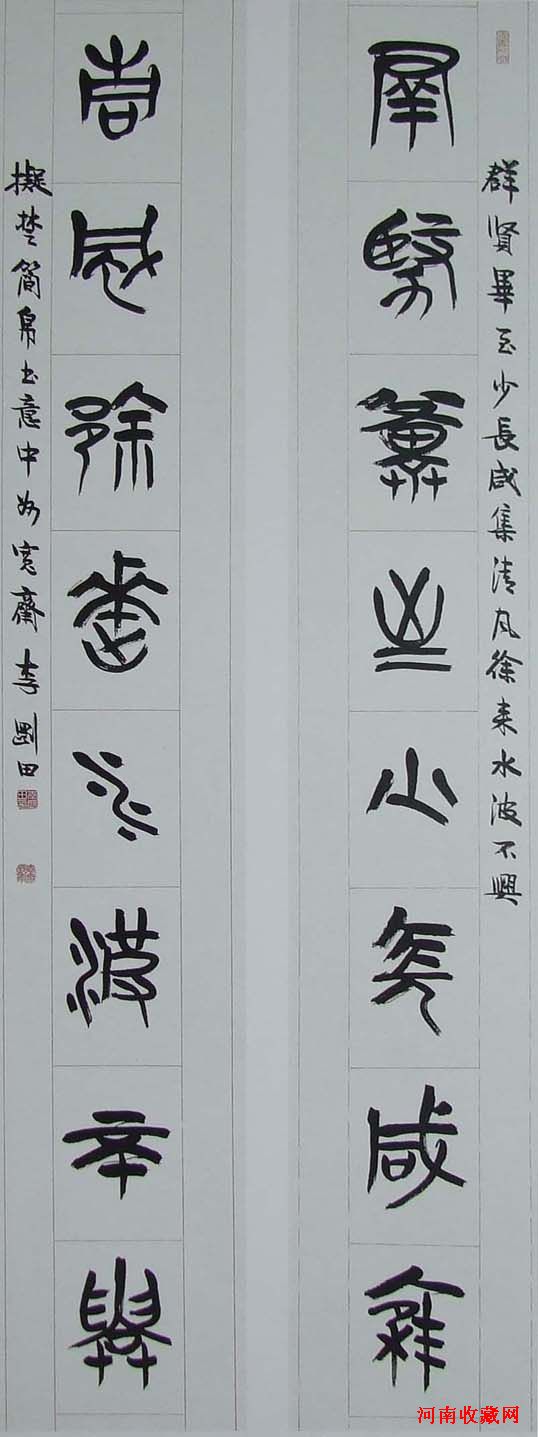 群賢畢至少長咸集清風徐来水波不興
群賢畢至少長咸集
青風徐來水波不興
擬楚簡帛书意中州寬齋李剛田
河南收藏网